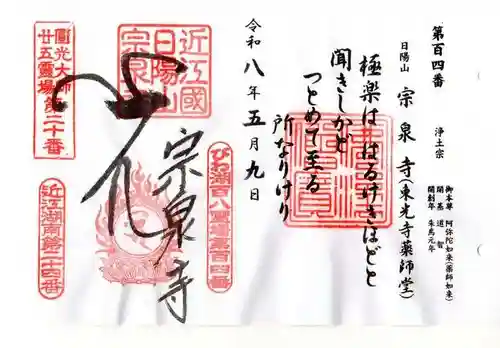 第百四番
日陽山 宗泉寺(東光寺薬師堂)
浄土宗
御本尊 阿弥陀如来(薬師如来)
開基 道智
開創年 朱鳥元年
極楽は はるけきほどと
聞きしかど
つとめて至る
所なりけり
令和八年五月九日
近江國
日陽山
宗泉寺
圓光大師
廿五霊場第二十番
宗泉寺
びわ湖百八霊場第百四番
近江湖南第二十四番